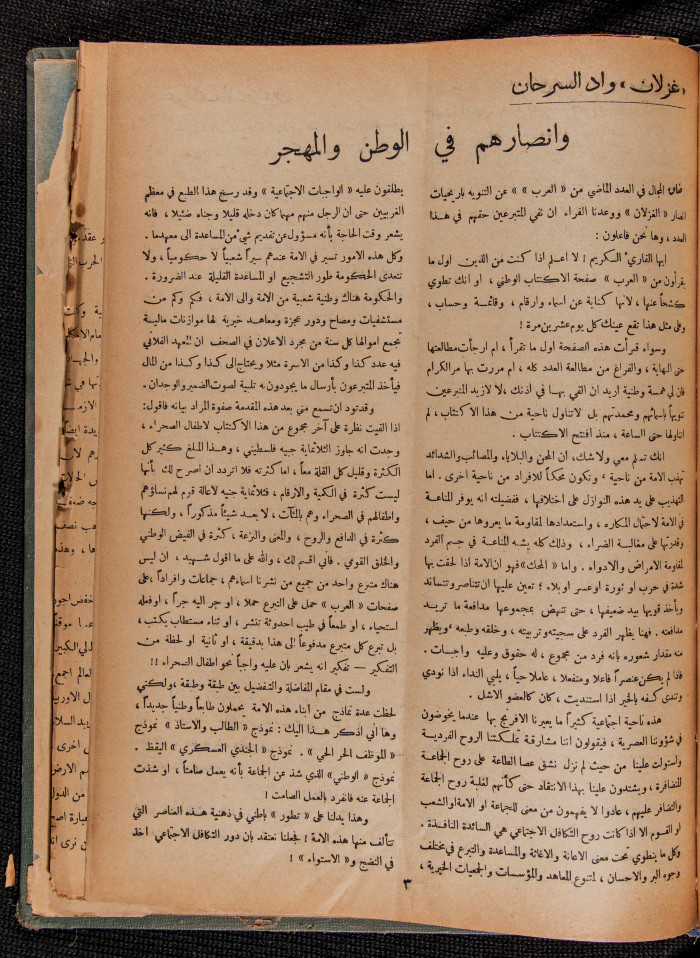 «غزلان» واد السرحان
وانصارهم في الوطن والمهجر
ضاق المجال في العدد الماضي من « العرب » عن التنويه باريحيات
انصار « الغزلان » ووعدنا القراء ان نفي المتبرعين حقهم في هذا
العدد ، وها نحن فاعلون :
ايها القاريء الكريم ! لا اعلم اذا كنت من الذين اول ما
يقرأون من « العرب » صفحة الاكتتاب الوطني ، او انك تطوي
كشحاً عنها ، لانها كناية عن اسماء وارقام ، وقائمة وحساب ،
وعلى مثل هذا تقع عينك كل يوم عشرين مرة !
وسواء قرأت هذه الصفحة اول ما تقرأ ، ام ارجأت مطالعتها
حتى النهاية ، والفراغ من مطالعة العدد كله ، ام مررت بها مر الكرام
فان لي همسة وطنية اريد ان القي بها في اذنك ، لا لازيد المتبرعين
تنويهاً باسمائهم ومحمدتهم بل لاتناول ناحية من هذا الاكتتاب ، لم
اتناولها حتى الساعة ، منذ افتتح الاكتتاب .
انك تعلم معي ولا شك ، ان المحن والبلايا ، والمصائب والشدائد
تهذب الامة من ناحية ، وتكون محكاً للافراد من ناحية اخرى . اما
التهذيب على يد هذه النوازل على اختلافها ، ففضيلته انه يوفر المناعة
في الامة لاحتمال المكاره ، واستعدادها لمقاومة ما يعروها من حيف ،
وقدرتها على مغالبة الضراء ، وذلك كله يشبه المناعة في جسم الفرد
لمقاومة الامراض والادواء . واما « المحك » فهو ان الامة اذا لحقت بها
شدة في حرب او ثورة او عسر او بلاء ؛ تعين عليها ان تتناصر وتتساند
ويأخذ قويها بيد ضعيفها ، حتى تنهض بمجموعها مدافعة ما تريد
مدافعته . فهنا يظهر الفرد على سجيته وتربيته ، وخلقه وطبعه ، ويظهر
منه مقدار شعوره بانه فرد من مجموع ، له حقوق وعليه واجبات .
فاذا لم يكن عنصراً فاعلا ومنفعلا ، عاملا حياً ، يلبي النداء اذا نودي
وتندى كفه بالخير اذا استنديت ، كان كالعضو الاشل .
هذه ناحية اجتماعية كثيراً ما يعيرنا الافرنج بها عندما يخوضون
في شؤوننا العصرية ، فيقولون اننا مشارقة تملكتنا الروح الفردية
واستولت علينا من حيث لم نزل نشق عصا الطاعة على روح الجماعة
المتضافرة ، ويشتدون علينا بهذا الانتقاد حتى كأنهم لغلبة روح الجماعة
والتضافر عليهم ، عادوا لا يفهمون من معنى للجماعة او الامة او الشعب
او القوم الا اذا كانت روح التكافل الاجتماعي هي السائدة النافذة .
وكل ما ينطوي تحت معنى الاعانة والاغاثة والمساعدة والتبرع في مختلف
وجوه البر والاحسان ، لمتنوع المعاهد والمؤسسات والجمعيات الخيرية ،
يطلقون عليه « الواجبات الاجتماعية » وقد رسخ هذا الطبع في معظم
الغربيين حتى ان الرجل منهم مهما كان دخله قليلا وجناه ضئيلا ، فانه
يشعر وقت الحاجة بأنه مسؤول عن تقديم شيء من المساعدة الى معهد ما .
وكل هذه الامور تسير في الامة عندهم سيراً شعبياً لا حكومياً ، ولا
تتعدى الحكومة طور التشجيع او المساعدة القليلة عند الضرورة .
والحكومة هناك وطنية شعبية من الامة والى الامة ، فكم وكم من
مستشفيات ومصاح ودور عجزة ومعاهد خيرية لها موازنات مالية
تجمع اموالها كل سنة من مجرد الاعلان في الصحف ان المعهد الفلاني
فيه عدد كذا وكذا من الاسرة مثلا ويحتاج الى كذا وكذا من المال
فيأخذ المتبرعون بأرسال ما يجودون به تلبية لصوت الضمير والوجدان .
وقد تود ان تسمع مني بعد هذه المقدمة صفوة المراد بيانه فاقول :
اذا القيت نظرة على آخر مجموع من هذا الاكتتاب لاطفال الصحراء ،
وجدت انه جاوز الثلاثماية جنيه فلسطيني ، وهذا المبلغ كثير كل
الكثرة وقليل كل القلة معاً ، اما كثرته فلا اتردد ان اصرح لك بأنها
ليست كثرة في الكمية والارقام ، فثلاثماية جنيه لاعالة قوم لهم نساؤهم
واطفالهم في الصحراء وهم بالمئات ، لا يعد شيئاً مذكوراً ، ولكنها
كثرة في الدافع والروح ، والمعنى والنزعة ، كثرة في الفيض الوطني
والخلق القومي . فاني اقسم لك ، والله على ما اقول شهيد ، ان ليس
هناك متبرع واحد من جميع من نشرنا اسماءهم ، جماعات وافراداً ، على
صفحات « العرب » حمل على التبرع حملا ، او جر اليه جراً ، او فعله
استحياء ، او طمعاً في طيب احدوثة تنشر ، او ثناء مستطاب يكتب ،
بل تبرع كل متبرع مدفوعاً الى هذا بدقيقة ، او ثانية او لحظة من
التفكير — تفكير انه يشعر بان عليه واجباً نحو اطفال الصحراء !!
ولست في مقام المفاضلة والتفضيل بين طبقة وطبقة ، ولكني
لحظت عدة نماذج من أبناء هذه الامة يحملون طابعاً وطنياً جديداً ،
وها أني اذكر هذا اليك : نموذج « الطالب والاستاذ » نموذج
« الموظف الحر الحي » . نموذج « الجندي العسكري » اليقظ .
نموذج « الوطني » الذي شذ عن الجماعة بأنه يعمل صامتاً ، او شذت
الجماعة عنه فانفرد بالعمل الصامت !
وهذا يدلنا على « تطور » باطني في ذهنية هذه العناصر التي
تتألف منها هذه الامة ! فجعلنا نعتقد بان دور التكافل الاجتماعي اخذ
في النضج و« الاستواء » !
٣